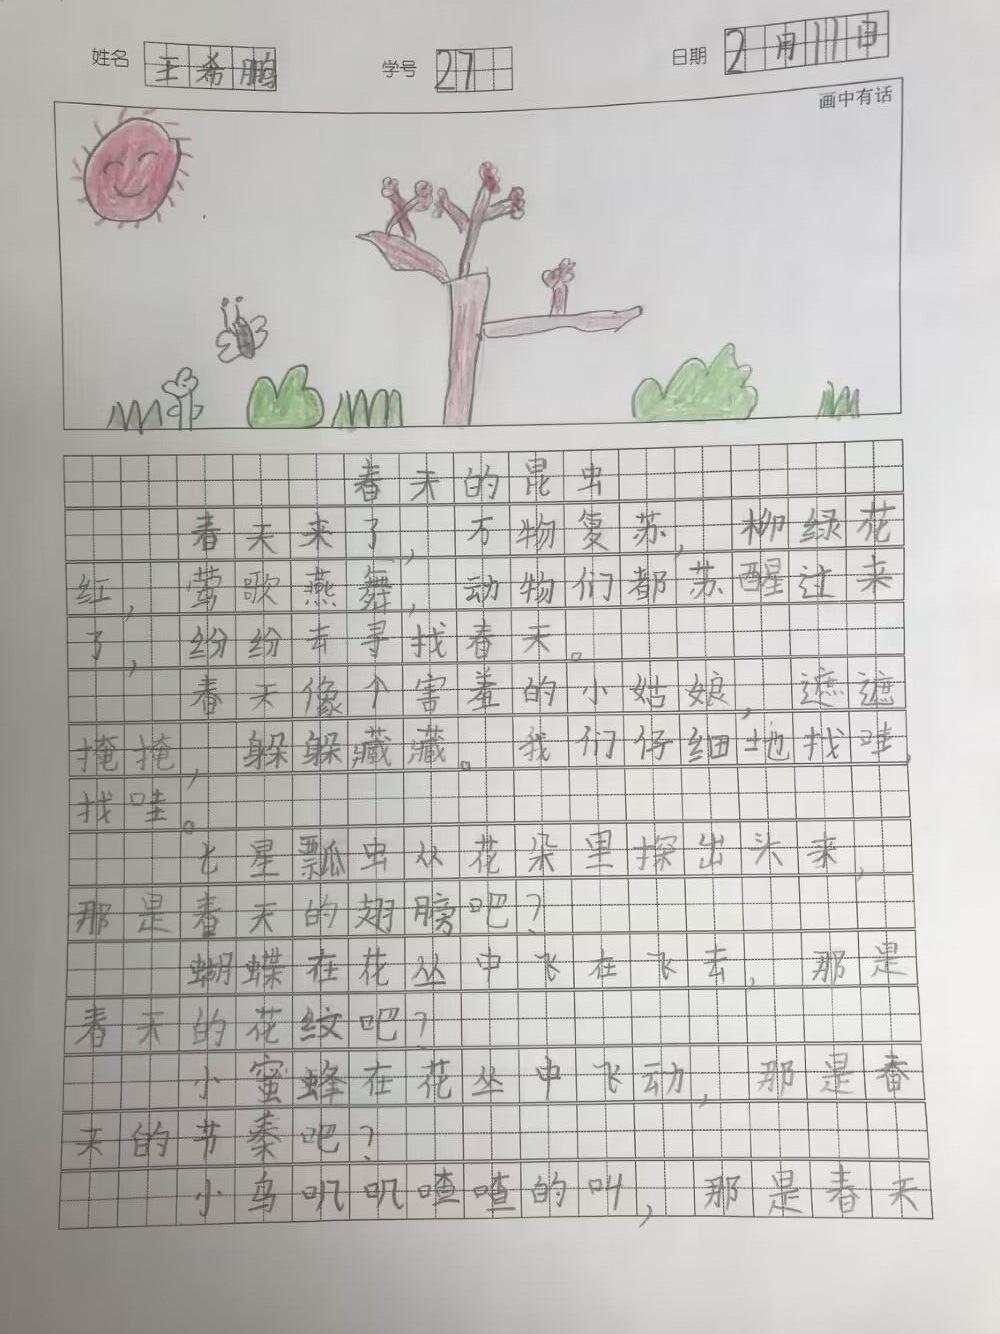 姓名 王希鹏 学号 27 日期 2月11日
画中有话
春天的昆虫
春天来了，万物复苏，柳绿花
红，莺歌燕舞，动物们都苏醒过来
了，纷纷去寻找春天。
春天像个害羞的小姑娘，遮遮
掩掩，躲躲藏藏。我们仔细地找哇，
找哇。
七星瓢虫从花朵里探出头来，
那是春天的翅膀吧？
蝴蝶在花丛中飞在飞去，那是
春天的花纹吧？
小蜜蜂在花丛中飞动，那是春
天的节奏吧？
小鸟叽叽喳喳的叫，那是春天